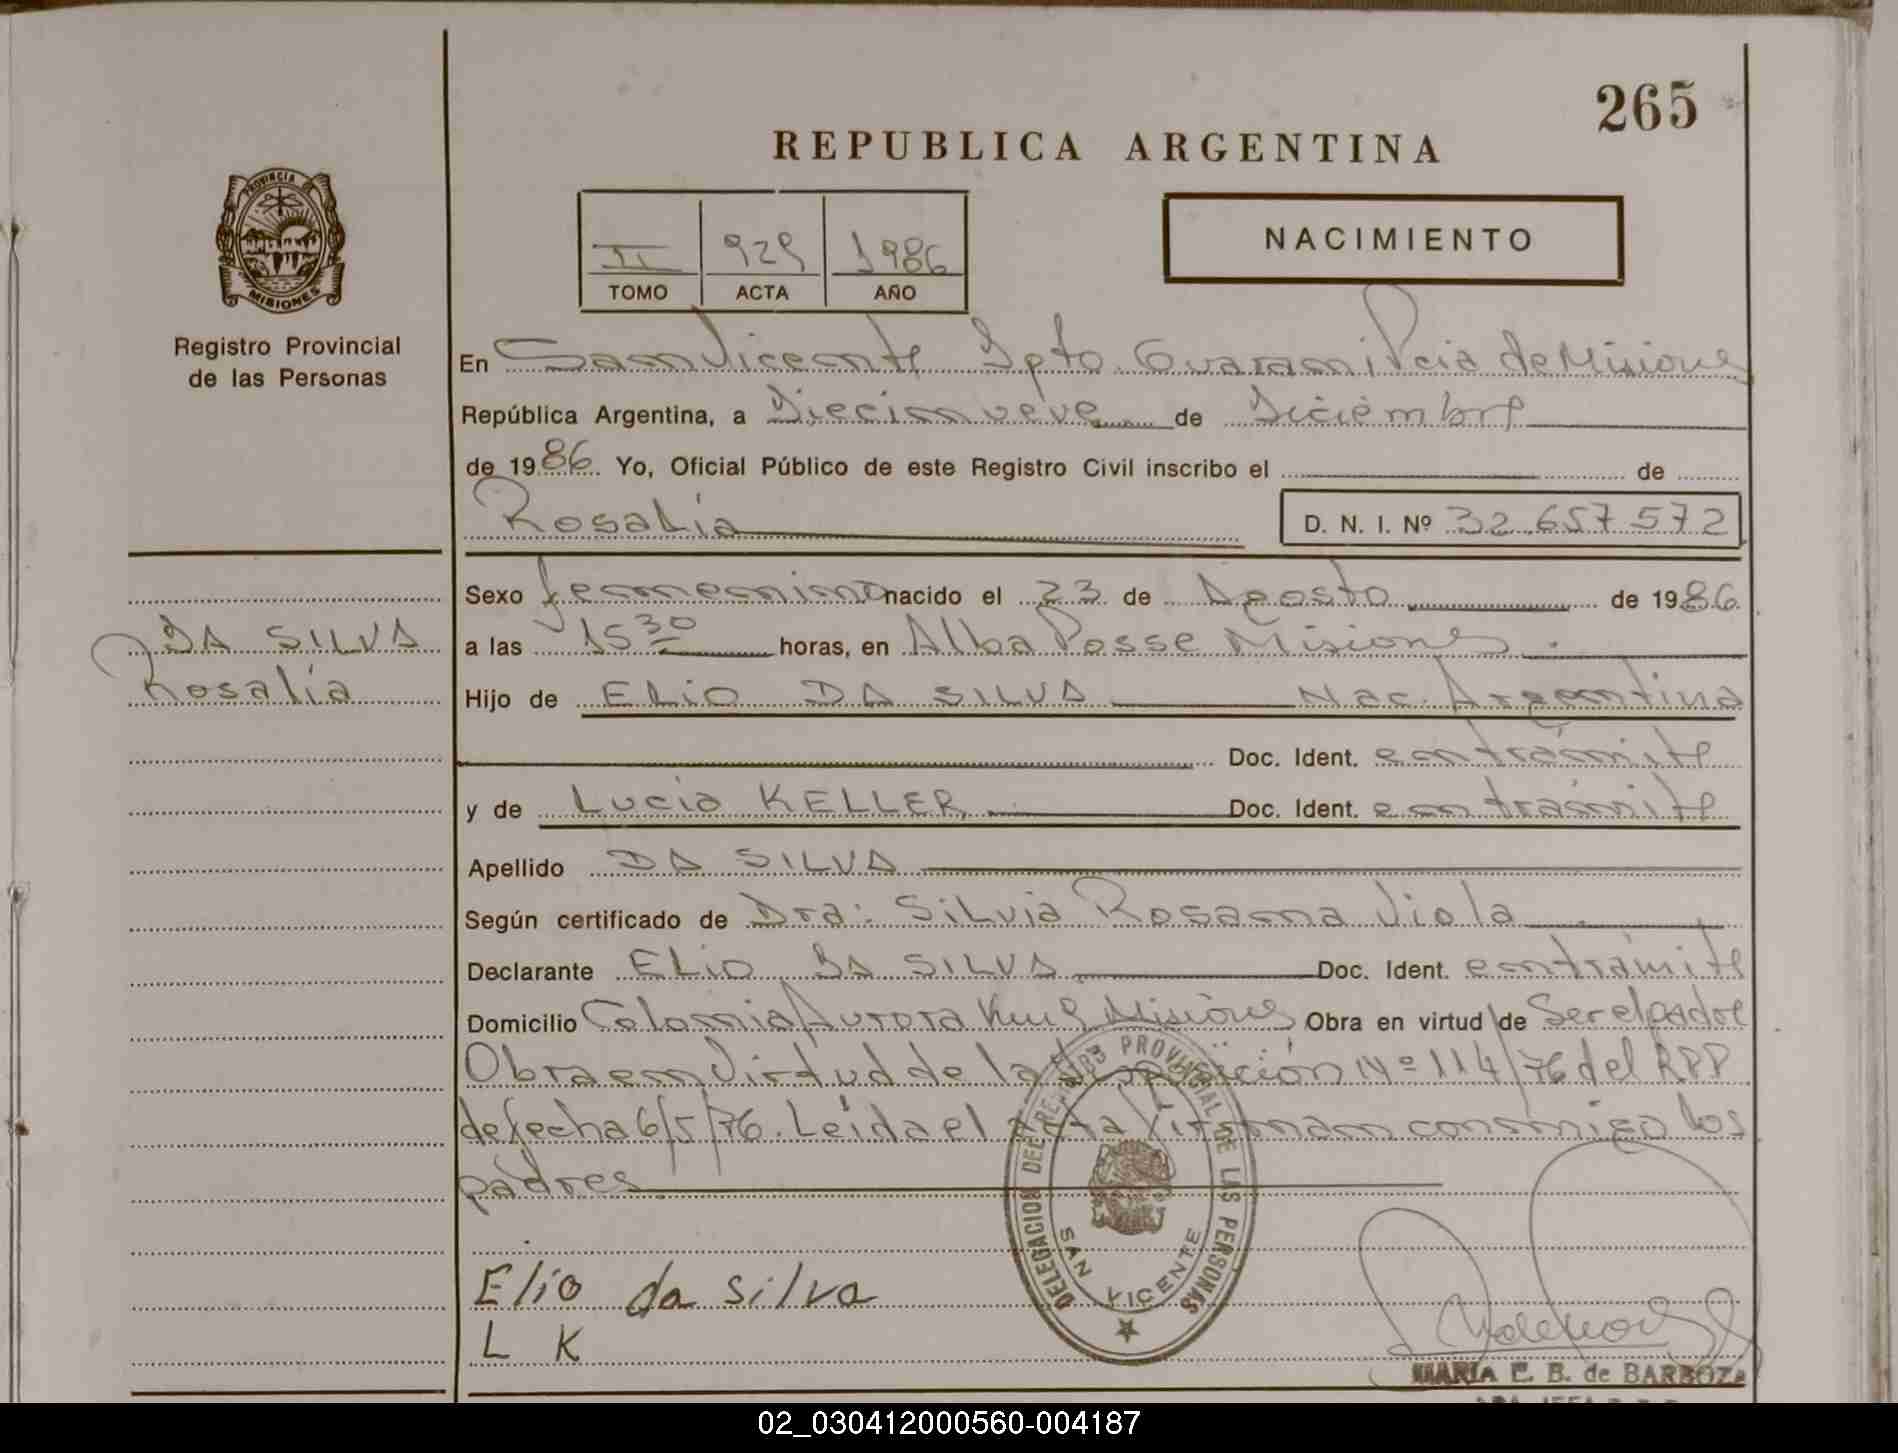 265
REPUBLICA ARGENTINA
PROVINCIA
MISIONES
Registro Provincial
de las Personas
II 929 1986
TOMO ACTA AÑO
NACIMIENTO
En San Vicente Dpto. Guarani Pcia de Misiones
República Argentina, a Diecinueve de Diciembre
de 1986. Yo, Oficial Público de este Registro Civil inscribo el de
Rosalia D. N. I. Nº 32.657.572
Sexo femenino nacido el 23 de Agosto de 1986
DA SILVA
Rosalia
a las 15 30 horas, en Alba Posse Misiones
Hijo de ELIO DA SILVA Nac. Argentina
Doc. Ident. en trámite
y de Lucia KELLER Doc. Ident. en trámite
Apellido DA SILVA
Según certificado de Dra: Silvia Rosana Viola
Declarante ELIO DA SILVA Doc. Ident. en trámite
Domicilio Colonia Aurora Misiones Obra en virtud de Ser el padre
Obra en Virtud de la Disposición Nº 114/76 del RPP
de fecha 6/5/76. Leida el acta firman conmigo los
padres.
DELEGACION DEL REGISTRO PROVINCIAL DE LAS PERSONAS
SAN VICENTE
Elio da silva
L K
MARIA E. B. de BARBOZA
02_030412000560-004187